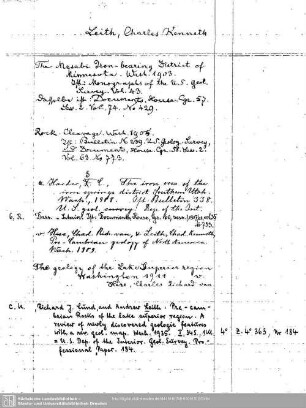 Leith, Charles Kenneth
The Mesabi Iron-bearing District of
Minnesota. Wash. 1903.
Monographs of the U.S. Geol.
Survey. Vol. 43.
Documents, House Cg. 57.
Ses. 2. Vol. 74. No 429.
Rock Cleavage. Wash. 1905.
Bulletin N 239. U.S. Geolog. Survey,
Documents, House Cg. 58. Ses. 2.
Vol. 63. No 773.
u. Harder, E. C. The iron ores of the
iron springs district Southern Utah.
Wash. 1908. Bulletin 338.
U. S. geol. survey. Dep. of the Int.
w Hise, Chad. Rich. van, & Leith, Chad. Kenneth,
Pre-Cambrian geology of North America
Wash. 1909.
The geology of the Lake Superior region
Washington 1911
Hise, Charles Richard van
Richard J. Lund, and Andrew Leith: Pre-cam-
brian Rocks of the lake superior region. A
review of newly discovered geologic features
with a rev. geol. map. Wash. 1935.
= U.S. Dep. of the Interior. Geol. Survey. Pro-
fessional Paper. 184.
4° Z. 4° 363, Nr 184